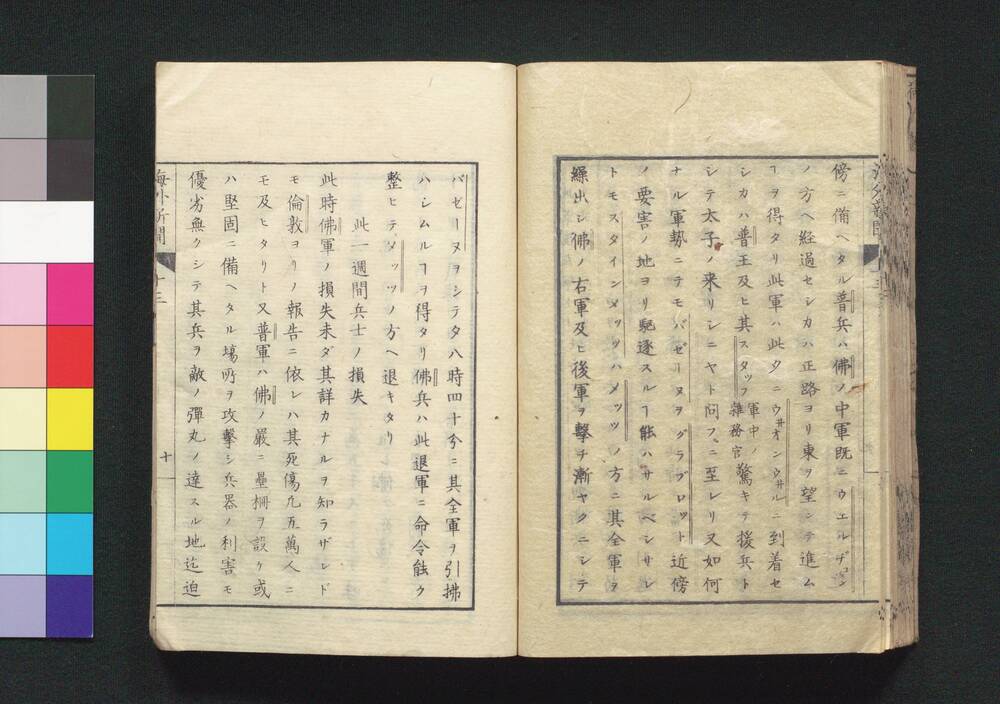 傍ニ備ヘタル普兵ハ佛ノ中軍既ニウエルヂョン
ノ方ヘ経過セシカハ正路ヨリ東ヲ望ンテ進ム
ヿヲ得タリ此軍ハ此夕ニウ井オンウ井ルニ到着セ
シカハ普王及ヒ其スタッフ軍中ノ雜務官驚キテ援兵ト
シテ太子ノ来リシニヤト問フニ至レリ又如何
ナル軍勢ニテモバゼーヌヲグラブロットト近傍
ノ要害ノ地ヨリ駈逐スルヿ能ハサルベシサレ
トモスタインメッツハメッツノ方ニ其全軍ヲ
繰出シ佛ノ右軍及ヒ後軍ヲ擊チ漸ヤクニシテ
バゼーヌヲシテ夕八時四十分ニ其全軍ヲ引拂
ハシムルヿヲ得タリ佛兵ハ此退軍ニ命令能ク
整ヒテメッツノ方ヘ退キタリ
此一週間兵士ノ損失
此時佛軍ノ損失未ダ其詳カナルヲ知ラザレド
モ倫敦ヨリノ報告ニ依レハ其死傷凡五萬人ニ
モ及ヒタリト又普軍ハ佛ノ嚴ニ壘柵ヲ設ケ或
ハ堅固ニ備ヘタル塲所ヲ攻擊シ兵器ノ利害モ
優劣無クシテ其兵ヲ敵ノ彈丸ノ達スル地迄迫
海外新聞 十三
十